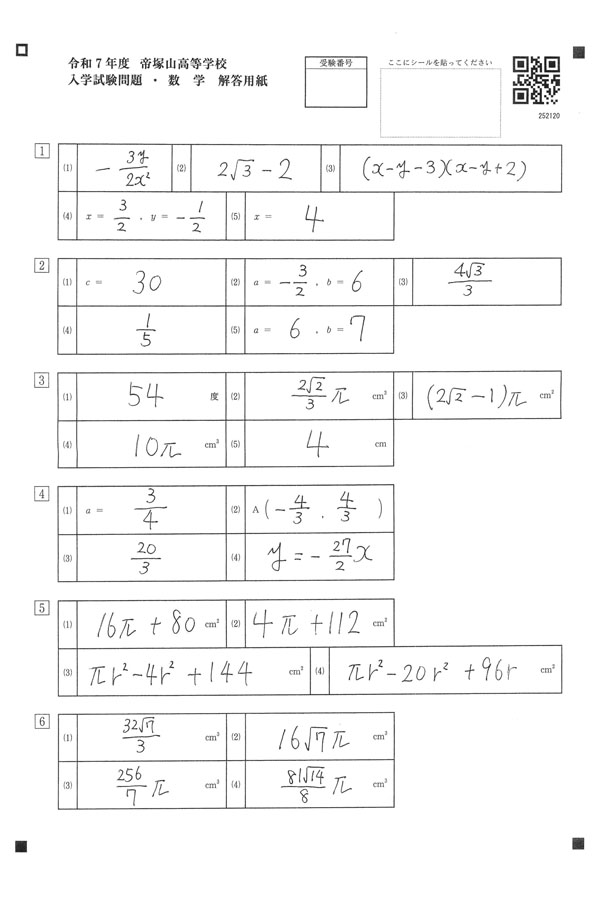 令和7年度 帝塚山高等学校
入学試験問題・数 学 解答用紙
受験番号
ここにシールを貼ってください
252120
1
(1) -3y/2x² (2) 2√3-2 (3) (x-y-3)(x-y+2)
(4) x = 3/2 , y = -1/2 (5) x = 4
2
(1) c = 30 (2) a = -3/2 , b = 6 (3) 4√3/3
(4) 1/5 (5) a = 6 , b = 7
3
(1) 54 度 (2) 2√2/3 π cm³ (3) (2√2-1)π cm²
(4) 10π cm³ (5) 4 cm
4
(1) a = 3/4 (2) A (-4/3 , 4/3)
(3) 20/3 (4) y = -27/2 x
5
(1) 16π+80 cm² (2) 4π+112 cm²
(3) πr²-4r²+144 cm² (4) πr²-20r²+96r cm²
6
(1) 32√7/3 cm³ (2) 16√7π cm³
(3) 256/7 π cm² (4) 81√14/8 π cm³